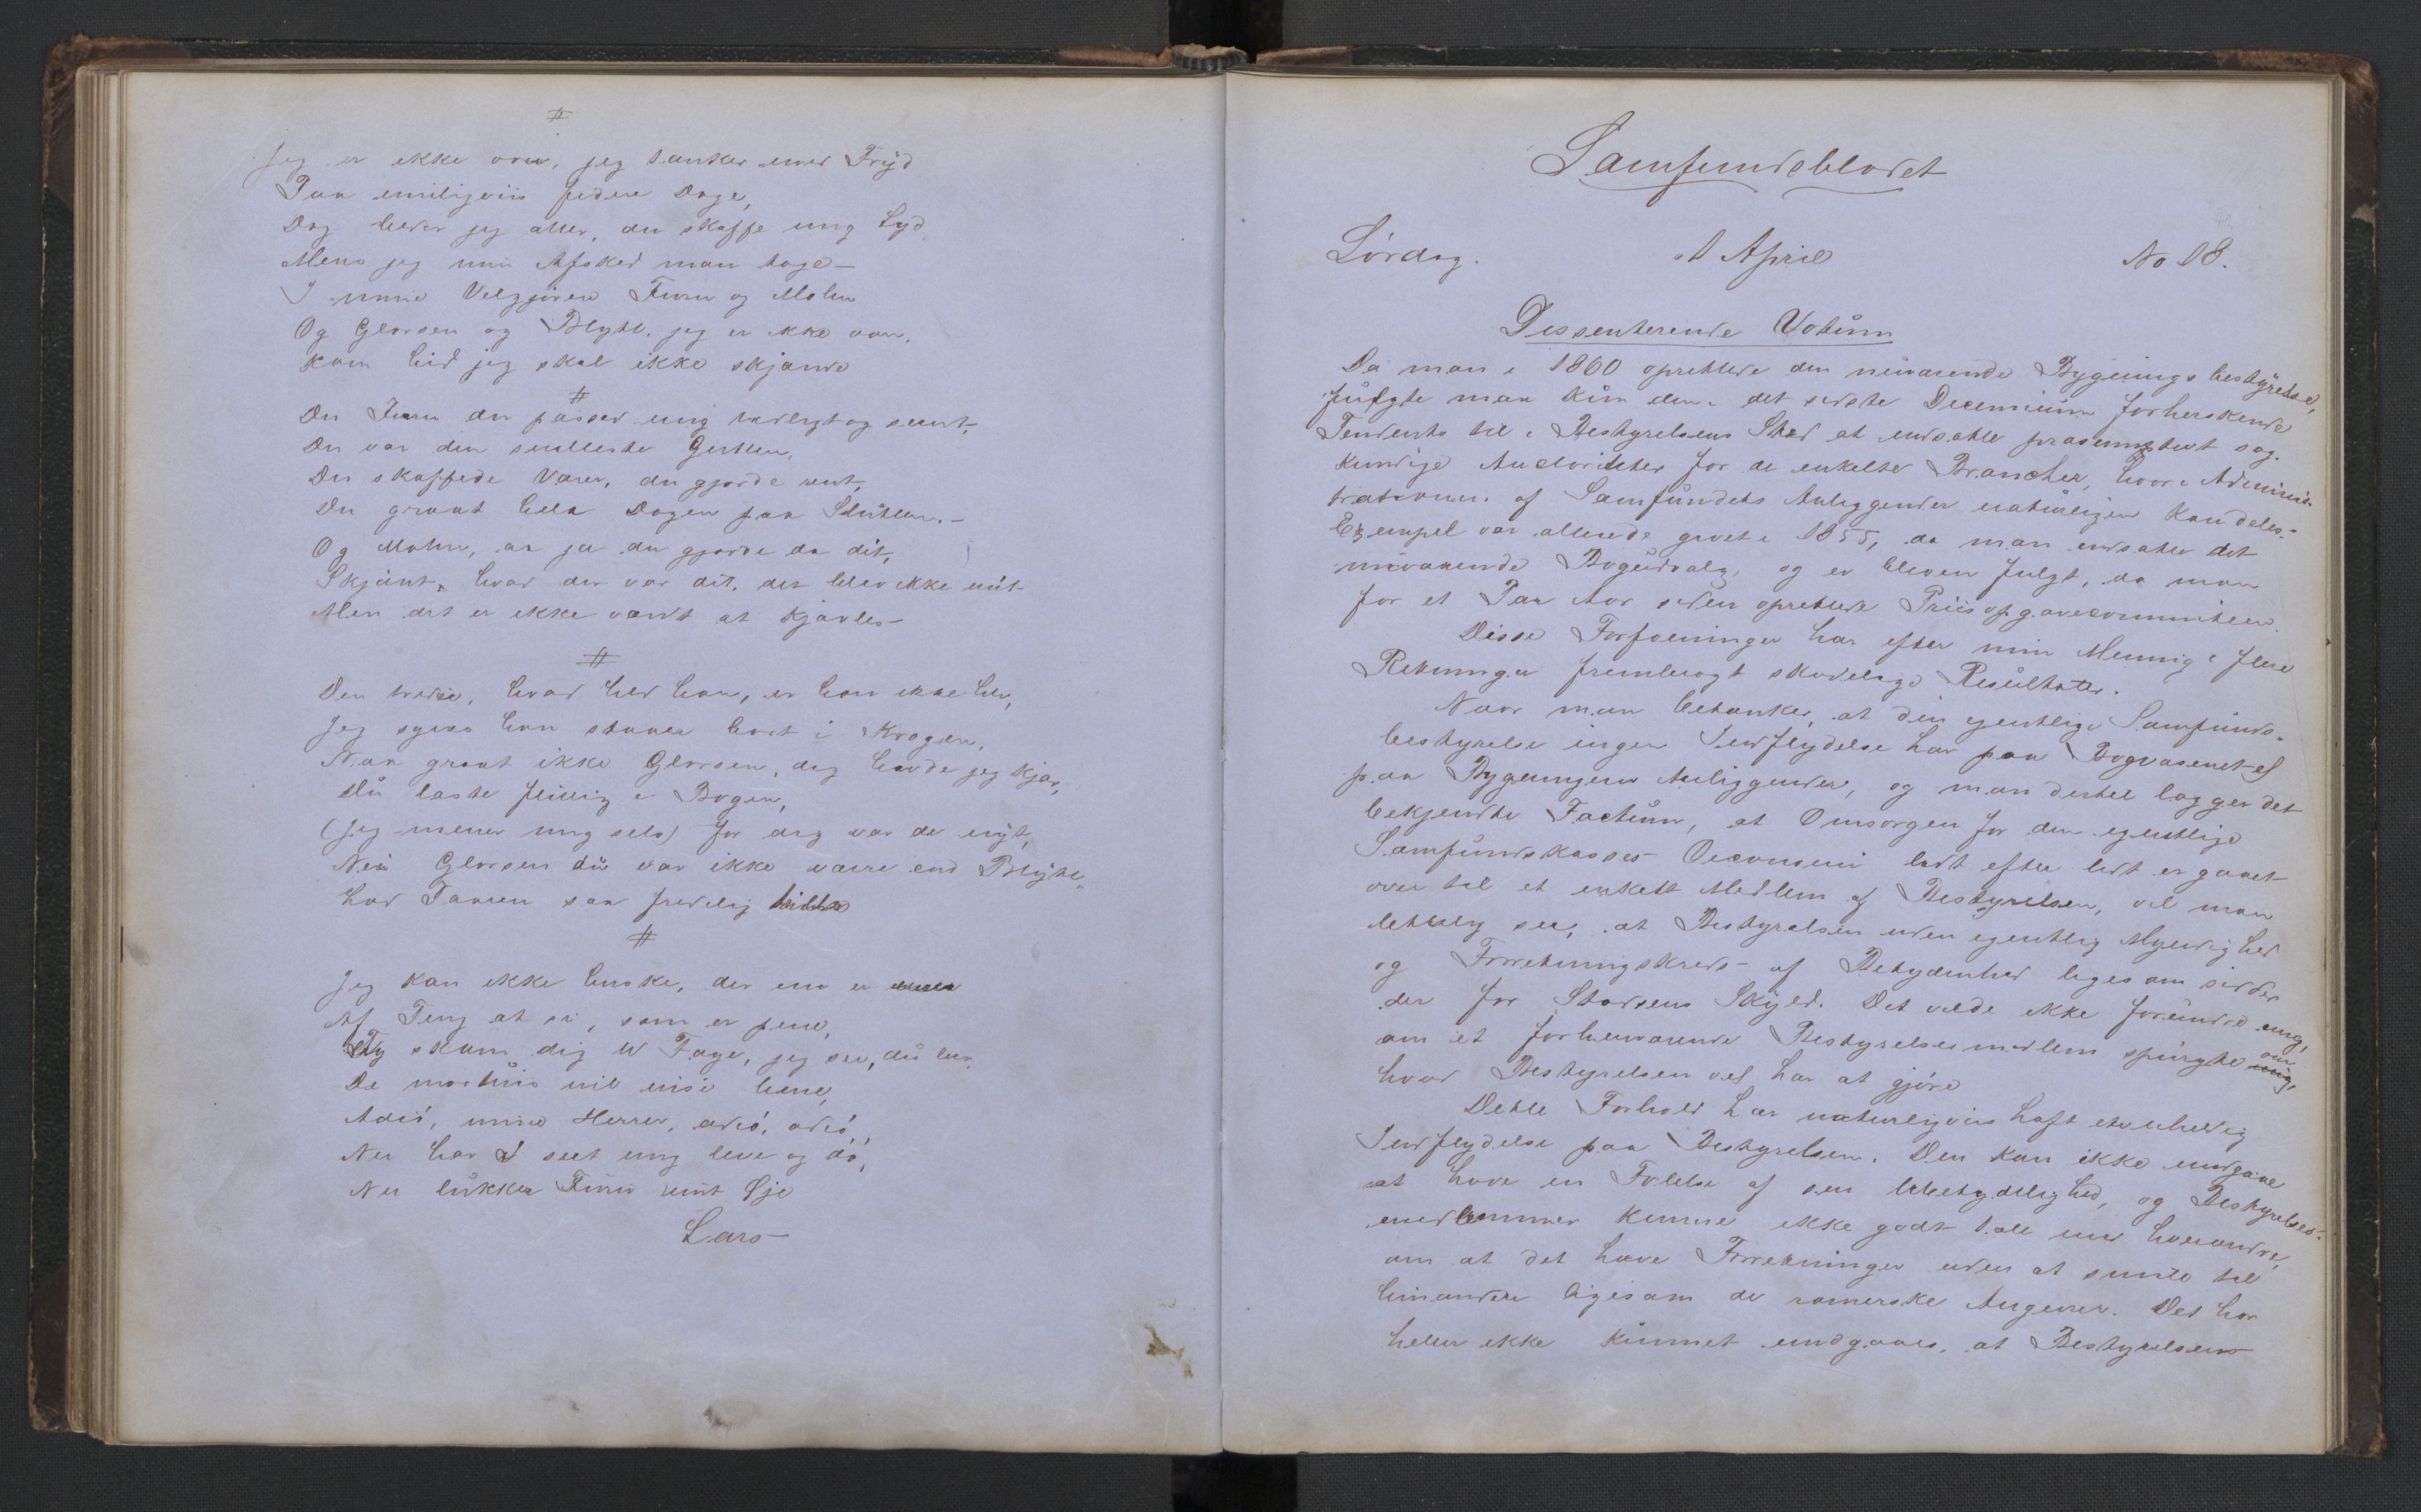 #
Jeg er ikke vred, jeg tænker med Fryd
Paa muligviis federe Dage,
Dog beder jeg alle, du skaffe mig Lyd
Mens jeg min Afsked maa tage –
I mine Velgjørere Furu og Mohn
Og Glørsen og Blytt, jeg er ikke vred,
Kom hid jeg skal ikke skjænde
#
Du Furu du passed mig ærligt og seent,
Du var den snilleste Gutten,
Du skaffede Varer, du gjorde reent,
Du græat hele Dagen paa Slutten. –
Og Mohn, aa ja du gjorde da dit,
Skjønt, hvad der var dit, det blev ikke mit
Men det er ikke værdt at kjævles –
#
Den tredie, hvad hed han, er han ikke her,
Jeg synes han staaer bort i Krogen,
Naa græat ikke Glørsen, dig havde jeg kjær,
Du læste flittig i Bogen,
(Jeg mener mig selv) for dig var de nyt,
Nei Glørsen du var ikke værre end Blytt,
Lad Taaren saa fredelig trille
#
Jeg kan ikke huske, der er
Af Ting at si, som er pene,
Fy skam dig W Faye, jeg ser, du ler,
De mortuis nil nisi bene,
Adiø, mine Herrer, adiø, adiø,
Nu har I seet mig leve og dø,
Nu lukker Furu mit Øje
Lars
Samfundsbladet
Lørdag. 1 April No 18.
Dissenterende Votum
Da man i 1860 oprettede den nuværende Bygningsbestyrelse,
fulgte man kun den i det sidste Decennium forherskende
Tendents til i Bestyrelsens Sted at indsætte præsumptivt sag-
kyndige Auctoriteter for de enkelte Brancher, hvori Adminis-
trationen af Samfundets Anliggender naturligen kan deles. –
Exempel var allerede givet i 1855, da man indsatte det
nuværende Bogudvalg, og er bleven fulgt, da man
for et Par Aar siden oprettede Priisopgavecommiteen.
Disse Forføininger har efter min Mening i flere
Retninger frembragt skadelige Resultater.
Naar man betænker, at den egentlige Samfunds-
bestyrelse ingen Indflydelse har paa Bogvæsenet el
paa Bygningens Anliggender, og man dertil lægger det
bekjendte Factum, at Omsorgen for den egentlige
Samfundskasses Oeconomi lidt efter lidt er gaaet
over til et enkelt Medlem af Bestyrelsen, vil man
letteligen see, at Bestyrelsen uden egentlig Myndighed
og Forretningskreds af Betydenhed ligesom sidder
der for Stadsens Skyld. Det vilde ikke forundre mig,
om et forhenværende Bestyrelsesmedlem spurgte om
hvad Bestyrelsen vel har at gjøre
Dette Forhold har naturligviis havt etuheldig
Indflydelse paa Bestyrelsen. Den kan ikke undgaae
at have en Følelse af sin Ubetydelighed, og Bestyrelses-
medlemmer kunne ikke godt tale med hverandre,
om at det have Forretninger uden at smile til
hinanden ligesom de romerske Augurer. Det har
heller ikke kunnet undgaaes, at Bestyrelsens